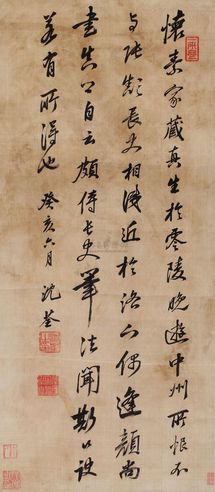 懷素字藏真生於零陵晚遊中州所恨不
与張顛長史相識近於洛下偶逢顏尚
書真卿自云頗傳長史筆法聞斯八法
若有所得也 癸亥六月 沈荃